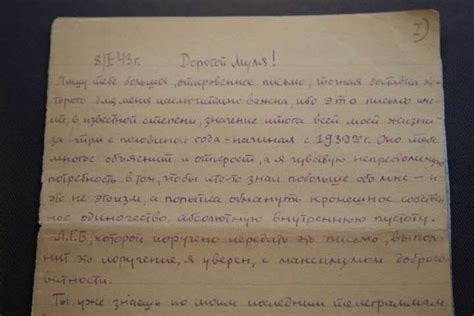 I)
8/I-43г. Дорогой Муля!
Пишу тебе большое, откровенное письмо, точная доставка ко-
торого для меня исключительно важна, ибо это письмо име-
ет, в известной степени, значение итога всей моей жизни
за три с половиной года - начиная с 1939го г. Оно тебе
многое объяснит и откроет, а я чувствую непреодолимую
потребность в том, чтобы кто-то знал побольше обо мне - и
это не эгоизм, а попытка обмануть кромешное собствен-
ное одиночество, абсолютную внутреннюю пустоту.
Л.Г.Б., которой поручено передать это письмо, выпол-
нит это поручение, я уверен, с максимумом добросо-
вестности.
Ты уже знаешь по моим последним телеграммам